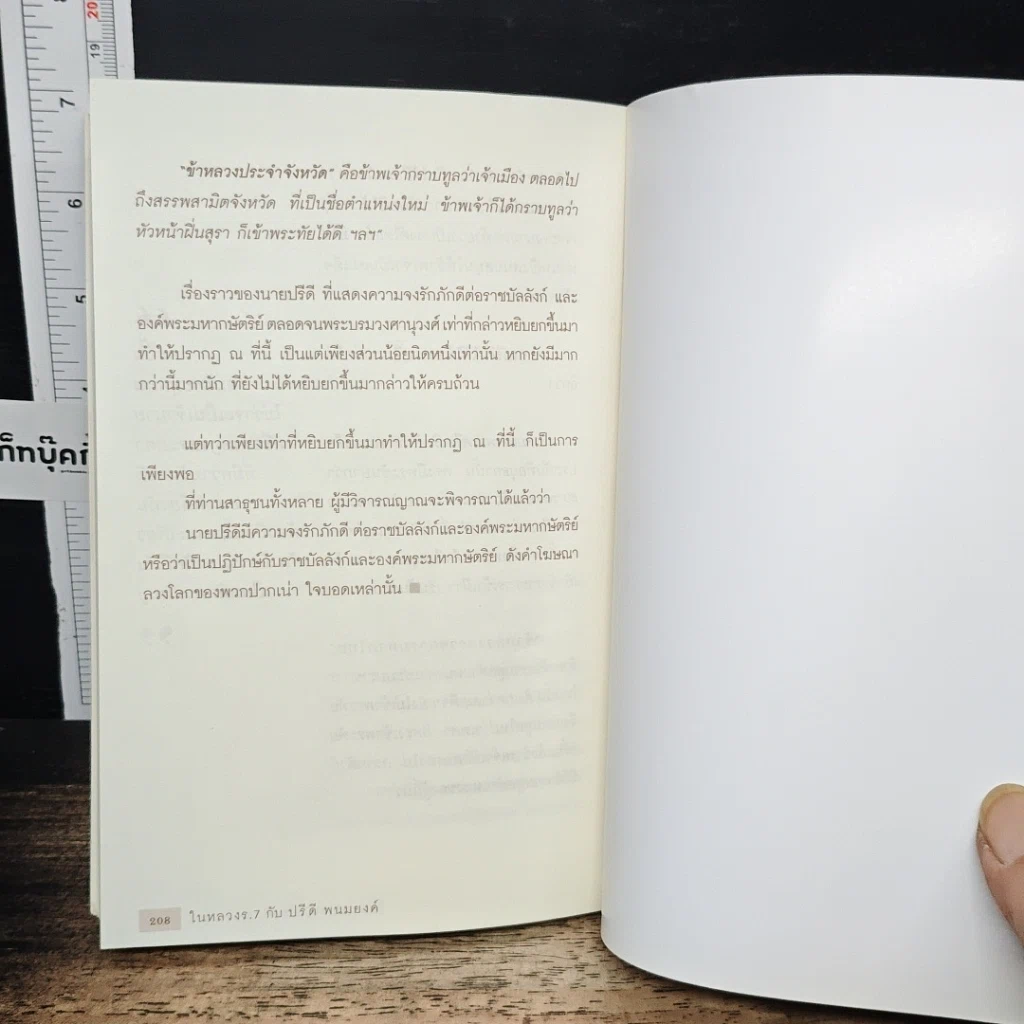 20
19
8
7
6
5
ก็ทบุ๊คก
"ข้าหลวงประจำจังหวัด" คือข้าพเจ้ากราบทูลว่าเจ้าเมือง ตลอดไป
ถึงสรรพสามิตจังหวัด ที่เป็นชื่อตำแหน่งใหม่ ข้าพเจ้าก็ได้กราบทูลว่า
หัวหน้าฝิ่นสุรา ก็เข้าพระทัยได้ดี ฯลฯ"
เรื่องราวของนายปรีดี ที่แสดงความจงรักภักดีต่อราชบัลลังก์ และ
องค์พระมหากษัตริย์ ตลอดจนพระบรมวงศานุวงศ์ เท่าที่กล่าวหยิบยกขึ้นมา
ทำให้ปรากฏ ณ ที่นี้ เป็นแต่เพียงส่วนน้อยนิดหนึ่งเท่านั้น หากยังมีมาก
กว่านี้มากนัก ที่ยังไม่ได้หยิบยกขึ้นมากล่าวให้ครบถ้วน
แต่ทว่าเพียงเท่าที่หยิบยกขึ้นมาทำให้ปรากฏ ณ ที่นี้ ก็เป็นการ
เพียงพอ
ที่ท่านสาธุชนทั้งหลาย ผู้มีวิจารณญาณจะพิจารณาได้แล้วว่า
นายปรีดีมีความจงรักภักดี ต่อราชบัลลังก์และองค์พระมหากษัตริย์
หรือว่าเป็นปฏิปักษ์กับราชบัลลังก์และองค์พระมหากษัตริย์ ดังคำโฆษณา
ลวงโลกของพวกปากเน่า ใจบอดเหล่านั้น
208 ในหลวงร.7 กับ ปรีดี พนมยงค์